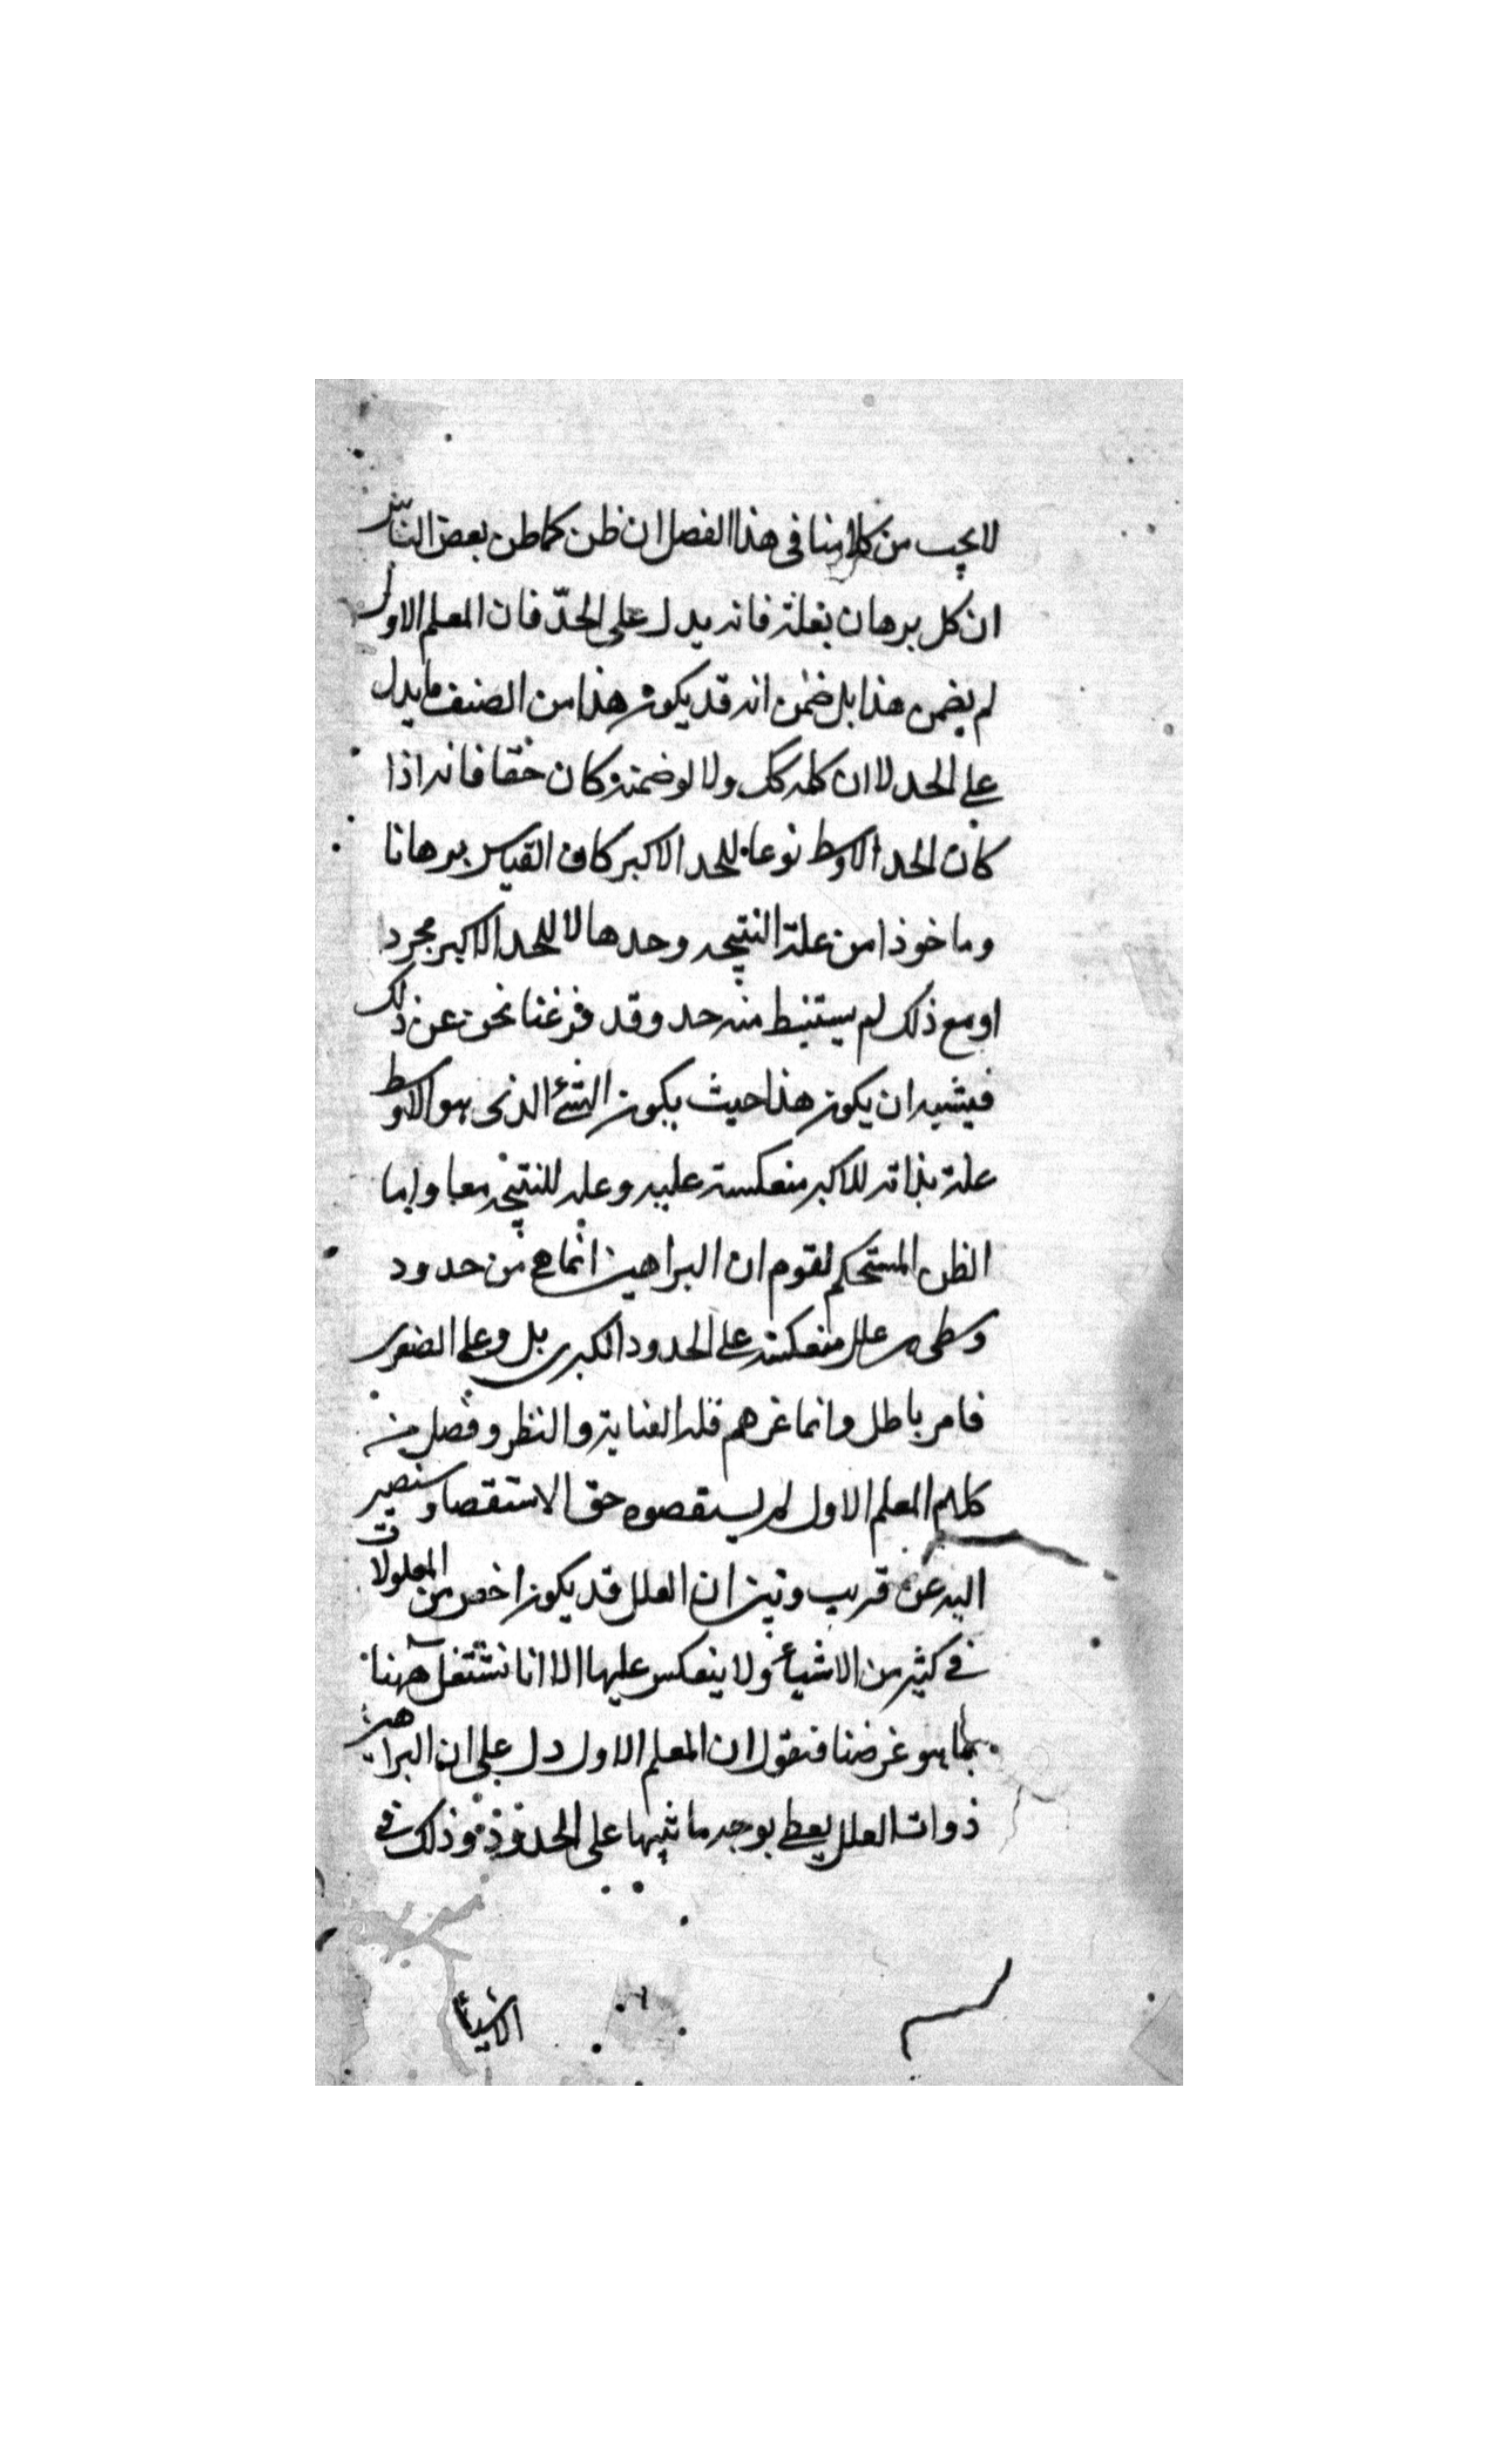 لا يجب من كلامنا في هذا الفصل ان ظن كما ظن بعض الناس
ان كل برهان بعلة فانه يدل على الحدّ فان المعلم الاول
لم يضمن هذا بل ضمن انه قد يكون هذا من الصنف ما يدل
على الحد لا ان كله كك ولا لو ضمنه كان حقا فانه اذا
كان الحد الاوسط نوعا للحد الاكبر كان القياس برهانا
وماخوذا من علة النتيجه وحدها لا للحد الاكبر مجرد
او مع ذلك لم يستنبط منه حد وقد فرغنا نحن عن ذلك
فيشبه ان يكون هذا حيث يكون الشئ الذي هو الاوسط
علة بذاته للاكبر منعكسة عليه وعله للنتيجه معا واما
الظن المستحكم لقوم ان البراهين انما هي من حدود
وسطى هي علل منعكسة على الحدود الكبرى بل وعلى الصغرى
فامر باطل وانما غرهم قله العناية والنظر وفصل من
كلام المعلم الاول لم يستقصوه حق الاستقصا وسنصير
اليه عن قريب ونبين ان العلل قد يكون اخص من المعلولات
في كثير من الاشياء ولا ينعكس عليها الا انا نشتغل ههنا
بما هو غرضنا فنقول ان المعلم الاول دل على ان البراهين
ذوات العلل يعطى بوجه ما تنبيها على الحدود وذلك في
الاشياء